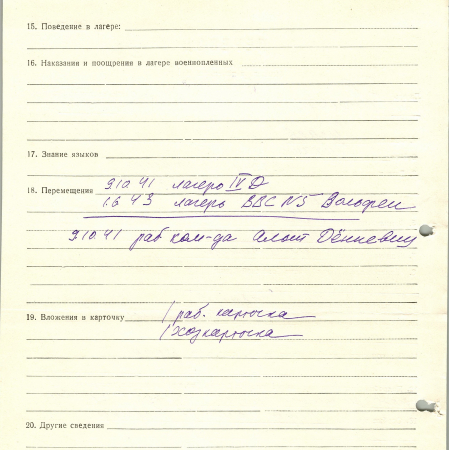 15. Поведение в лагере:
16. Наказания и поощрения в лагере военнопленных
17. Знание языков
18. Перемещения 9 10 41 лагерь IV D
1.6 43 лагерь ВВС №5 Вольфен
9 10 41 раб ком-да
19. Вложения в карточку 1 раб. карточка
1 хозкарточка
20. Другие сведения